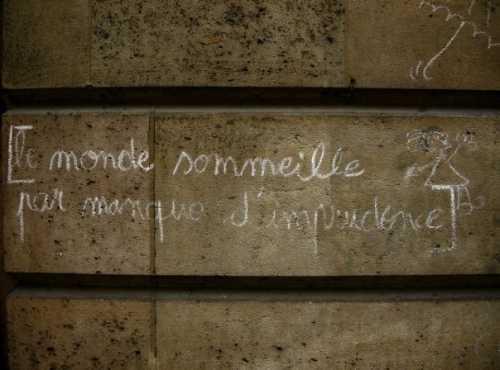 [le monde sommeille
par manque d'imprudence]